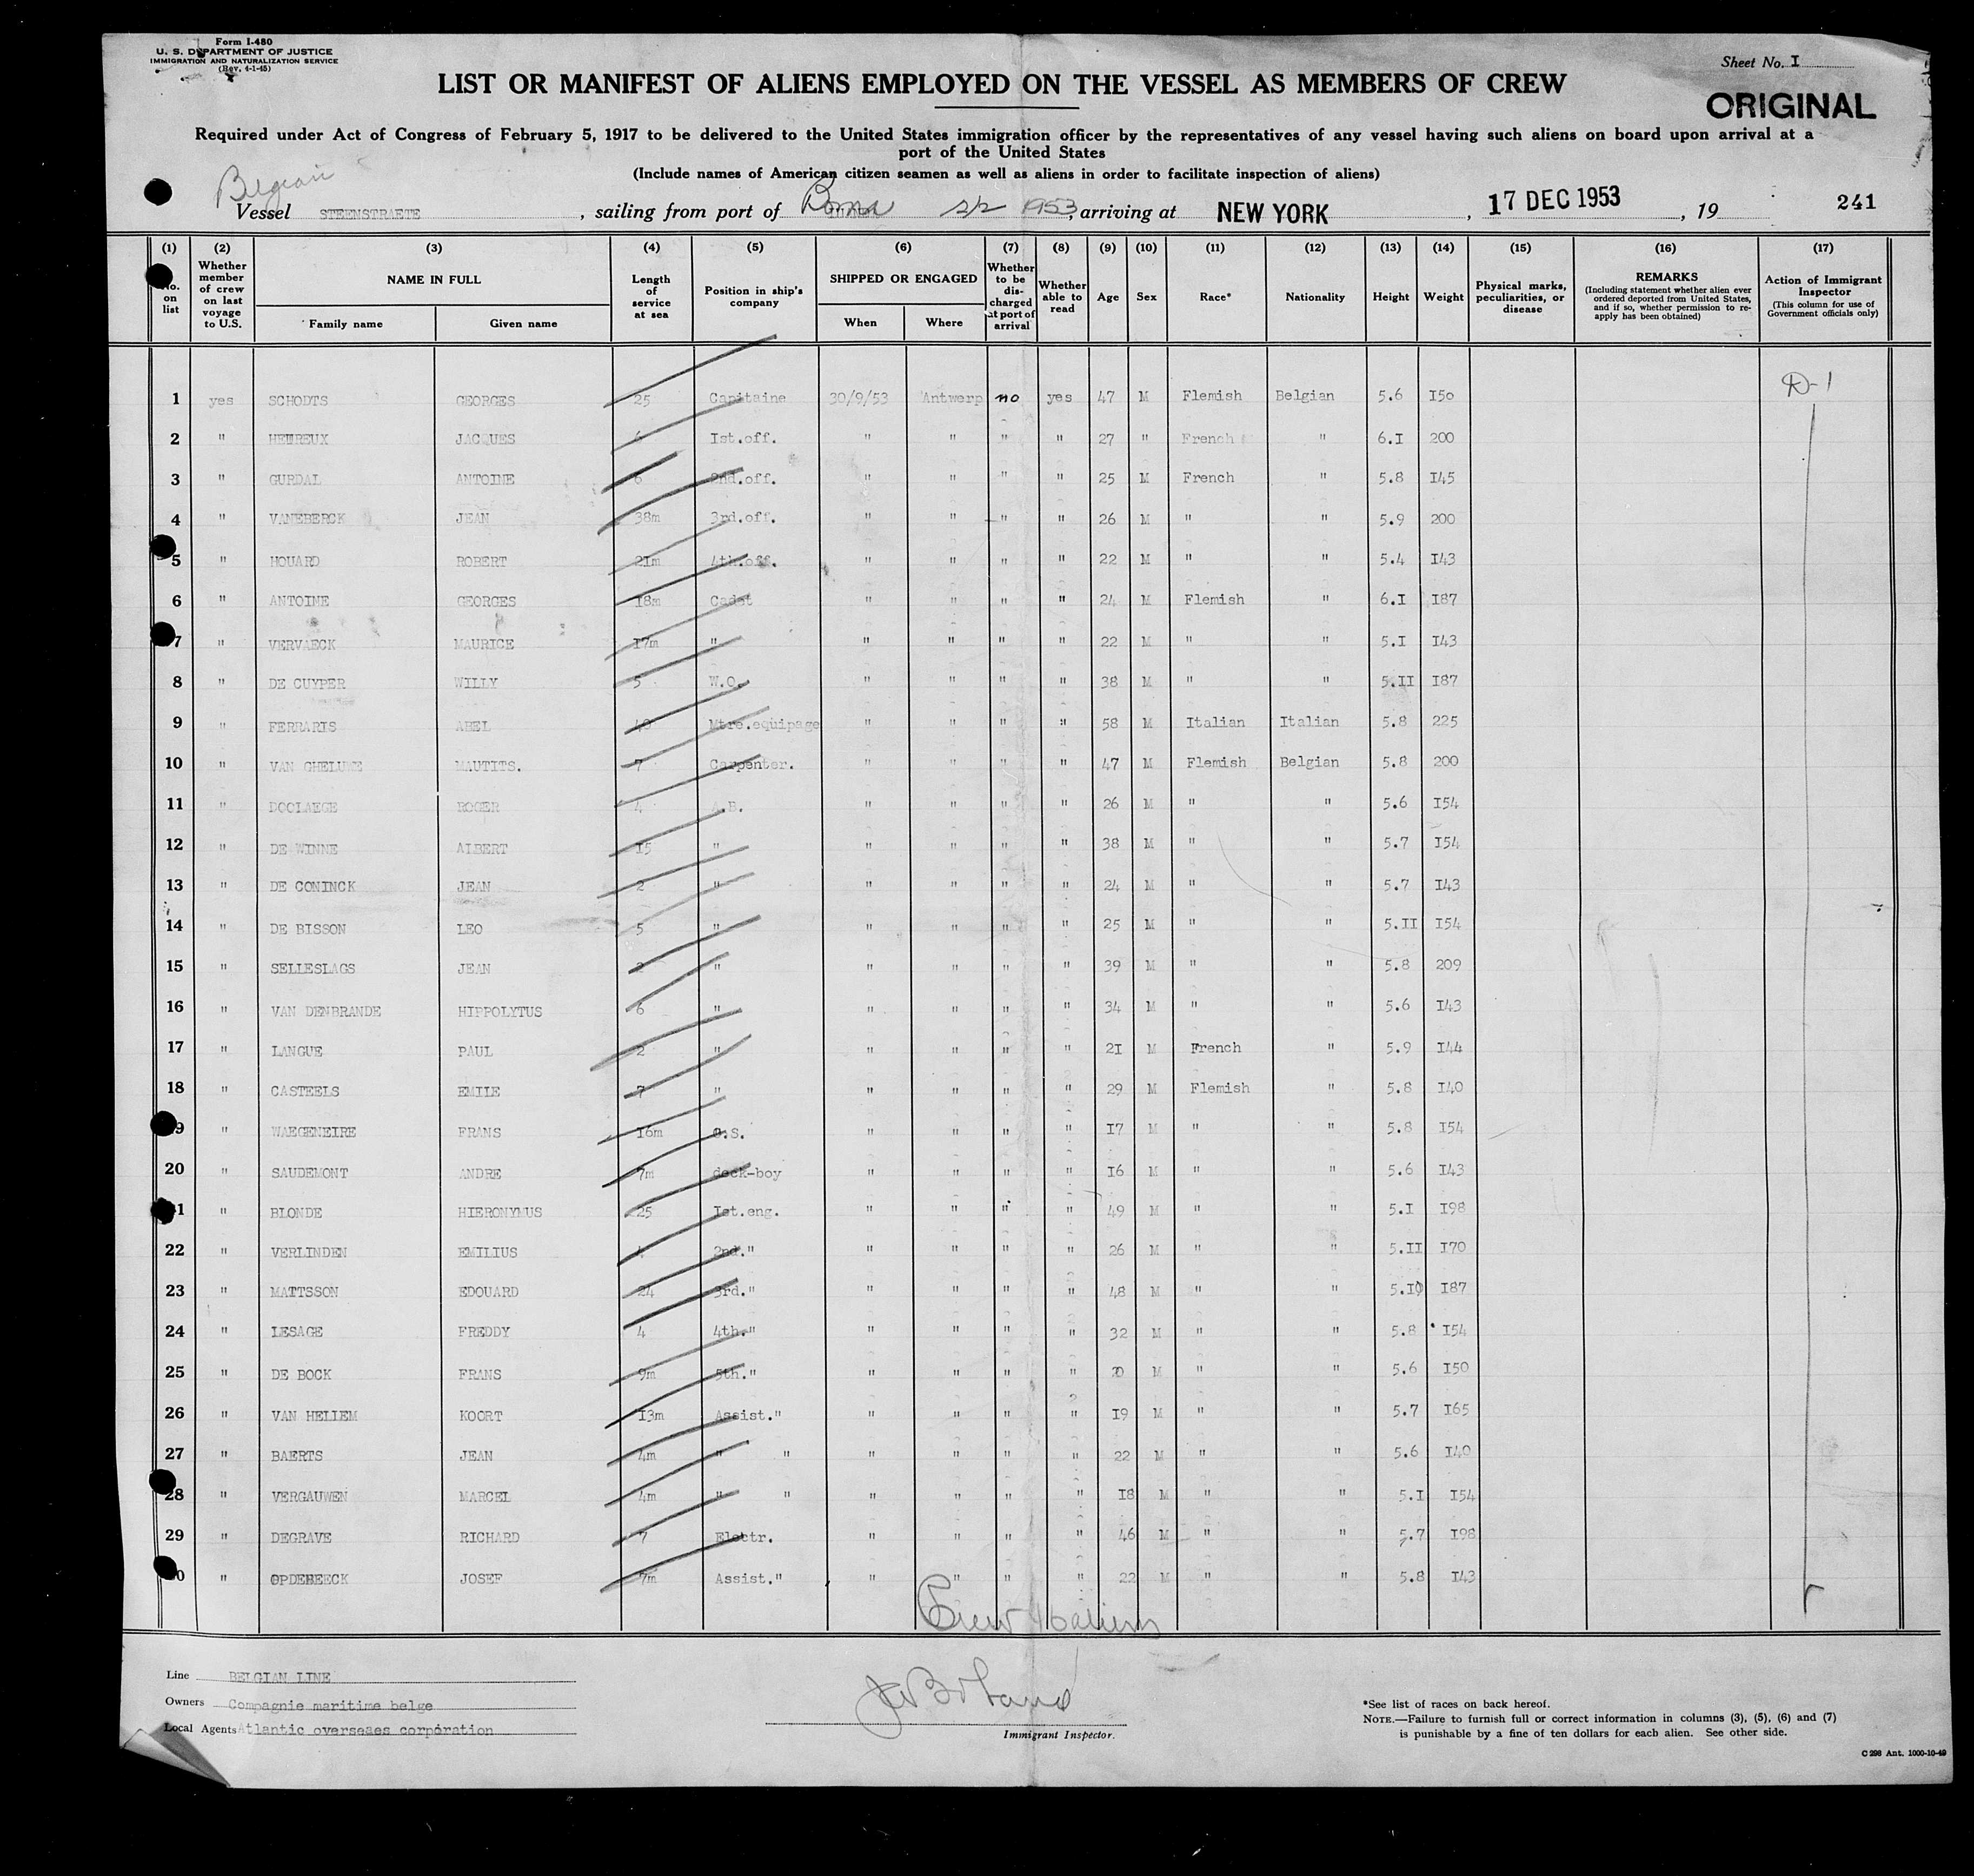 Form I-480
U. S. DEPARTMENT OF JUSTICE
IMMIGRATION AND NATURALIZATION SERVICE
(Rev. 4-1-45)
Sheet No. I
LIST OR MANIFEST OF ALIENS EMPLOYED ON THE VESSEL AS MEMBERS OF CREW
ORIGINAL
Required under Act of Congress of February 5, 1917 to be delivered to the United States immigration officer by the representatives of any vessel having such aliens on board upon arrival at a
port of the United States
(Include names of American citizen seamen as well as aliens in order to facilitate inspection of aliens)
Belgian
Vessel STEENSTRAETE, sailing from port of Boma 1953, arriving at NEW YORK, 17 DEC 1953, 19 241
(1) (2) (3) (4) (5) (6) (7) (8) (9) (10) (11) (12) (13) (14) (15) (16) (17)
No. on list
Whether member of crew on last voyage to U.S.
NAME IN FULL
Family name Given name
Length of service at sea
Position in ship's company
SHIPPED OR ENGAGED
When Where
Whether to be discharged at port of arrival
Whether able to read
Age Sex Race* Nationality Height Weight
Physical marks, peculiarities, or disease
REMARKS
(Including statement whether alien ever ordered deported from United States, and if so, whether permission to re-apply has been obtained)
Action of Immigrant Inspector
(This column for use of Government officials only)
1 yes SCHODTS GEORGES 25 Capitaine 30/9/53 Antwerp no yes 47 M Flemish Belgian 5.6 I50 D-1
2 " HEUREUX JACQUES 6 Ist.off. " " " " 27 " French " 6.I 200
3 " GURDAL ANTOINE 6 2nd.off. " " " " 25 M French " 5.8 I45
4 " VANEBERCK JEAN 38m 3rd.off. " " " " 26 M " " 5.9 200
5 " HOUARD ROBERT 2Im 4th.off. " " " " 22 M " " 5.4 I43
6 " ANTOINE GEORGES I8m Cadet " " " " 24 M Flemish " 6.I I87
7 " VERVAECK MAURICE I7m " " " " " 22 M " " 5.I I43
8 " DE CUYPER WILLY 5 W.O. " " " " 38 M " " 5.II I87
9 " FERRARIS ABEL 40 Mtre.equipage " " " " 58 M Italian Italian 5.8 225
10 " VAN GHELUWE MAUTITS. 7 Carpenter. " " " " 47 M Flemish Belgian 5.8 200
11 " DOOLAEGE ROGER 4 A.B. " " " " 26 M " " 5.6 I54
12 " DE WINNE ALBERT I5 " " " " " 38 M " " 5.7 I54
13 " DE CONINCK JEAN 2 " " " " " 24 M " " 5.7 I43
14 " DE BISSON LEO 5 " " " " " 25 M " " 5.II I54
15 " SELLESLAGS JEAN 2 " " " " " 39 M " " 5.8 209
16 " VAN DENBRANDE HIPPOLYTUS 6 " " " " " 34 M " " 5.6 I43
17 " LANGUE PAUL 2 " " " " " 2I M French " 5.9 I44
18 " CASTEELS EMILE 7 " " " " " 29 M Flemish " 5.8 I40
19 " WAEGENEIRE FRANS I6m O.S. " " " " I7 M " " 5.8 I54
20 " SAUDEMONT ANDRE 7m deck-boy " " " " I6 M " " 5.6 I43
21 " BLONDE HIERONYMUS 25 Ist.eng. " " " " 49 M " " 5.I I98
22 " VERLINDEN EMILIUS 4 2nd." " " " " 26 M " " 5.II I70
23 " MATTSSON EDOUARD 24 3rd." " " " " 48 M " " 5.I0 I87
24 " LESAGE FREDDY 4 4th." " " " " 32 M " " 5.8 I54
25 " DE BOCK FRANS 9m 5th." " " " " 20 M " " 5.6 I50
26 " VAN HELLEM KOORT I3m Assist." " " " " I9 M " " 5.7 I65
27 " BAERTS JEAN 4m " " " " " " 22 M " " 5.6 I40
28 " VERGAUWEN MARCEL 4m " " " " " " I8 M " " 5.I I54
29 " DEGRAVE RICHARD 7 Electr. " " " " 46 M " " 5.7 I98
30 " OPDEBEECK JOSEF 7m Assist." " " " " 22 M " " 5.8 I43
Crew 46 aliens
Line BELGIAN LINE
Owners Compagnie maritime belge
Local Agents Atlantic overseaes corporation
Immigrant Inspector.
*See list of races on back hereof.
NOTE.—Failure to furnish full or correct information in columns (3), (5), (6) and (7)
is punishable by a fine of ten dollars for each alien. See other side.
C 298 Ant. 1000-10-49